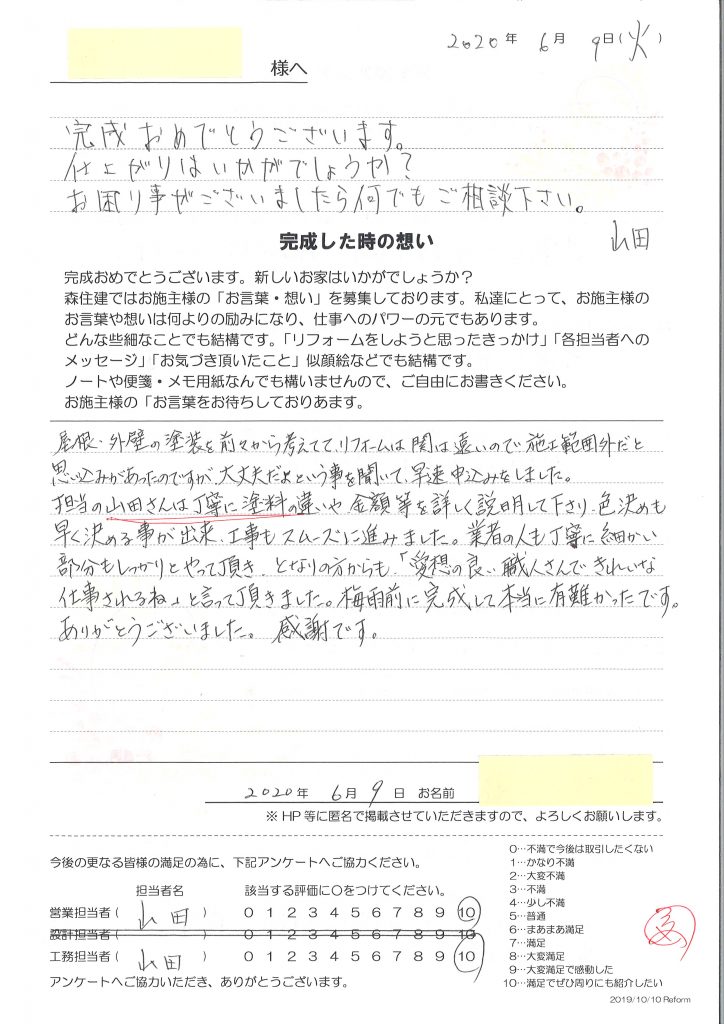 2020年 6月 9日(火)
様へ
完成おめでとうございます。
仕上がりはいかがでしょうか?
お困り事がございましたら何でもご相談下さい。
山田
完成した時の想い
完成おめでとうございます。新しいお家はいかがでしょうか?
森住建ではお施主様の「お言葉・想い」を募集しております。私達にとって、お施主様の
お言葉や想いは何よりの励みになり、仕事へのパワーの元でもあります。
どんな些細なことでも結構です。「リフォームをしようと思ったきっかけ」「各担当者への
メッセージ」「お気づき頂いたこと」似顔絵などでも結構です。
ノートや便箋・メモ用紙なんでも構いませんので、ご自由にお書きください。
お施主様の「お言葉をお待ちしておりあます。
屋根・外壁の塗装を前々から考えてて、リフォームは関は遠いので施工範囲外だと
思い込みがあったのですが、大丈夫だよという事を聞いて、早速申込みをしました。
担当の山田さんは丁寧に塗料の違いや金額等を詳しく説明して下さり、色決めも
早く決める事が出来、工事もスムーズに進みました。業者の人も丁寧に細かい
部分もしっかりとやって頂き、となりの方からも、「愛想の良い職人さんできれいな
仕事されるね」と言って頂きました。梅雨前に完成して本当に有難かったです。
ありがとうございました。感謝です。
2020年 6月 9日 お名前
※HP等に匿名で掲載させていただきますので、よろしくお願いします。
今後の更なる皆様の満足の為に、下記アンケートへご協力ください。
担当者名 該当する評価に○をつけてください。
営業担当者( 山田 ) 0 1 2 3 4 5 6 7 8 9 10
設計担当者( ) 0 1 2 3 4 5 6 7 8 9 10
工務担当者( 山田 ) 0 1 2 3 4 5 6 7 8 9 10
アンケートへご協力いただき、ありがとうございます。
0…不満で今後は取引したくない
1…かなり不満
2…大変不満
3…不満
4…少し不満
5…普通
6…まあまあ満足
7…満足
8…大変満足
9…大変満足で感動した
10…満足でぜひ周りにも紹介したい
2019/10/10 Reform